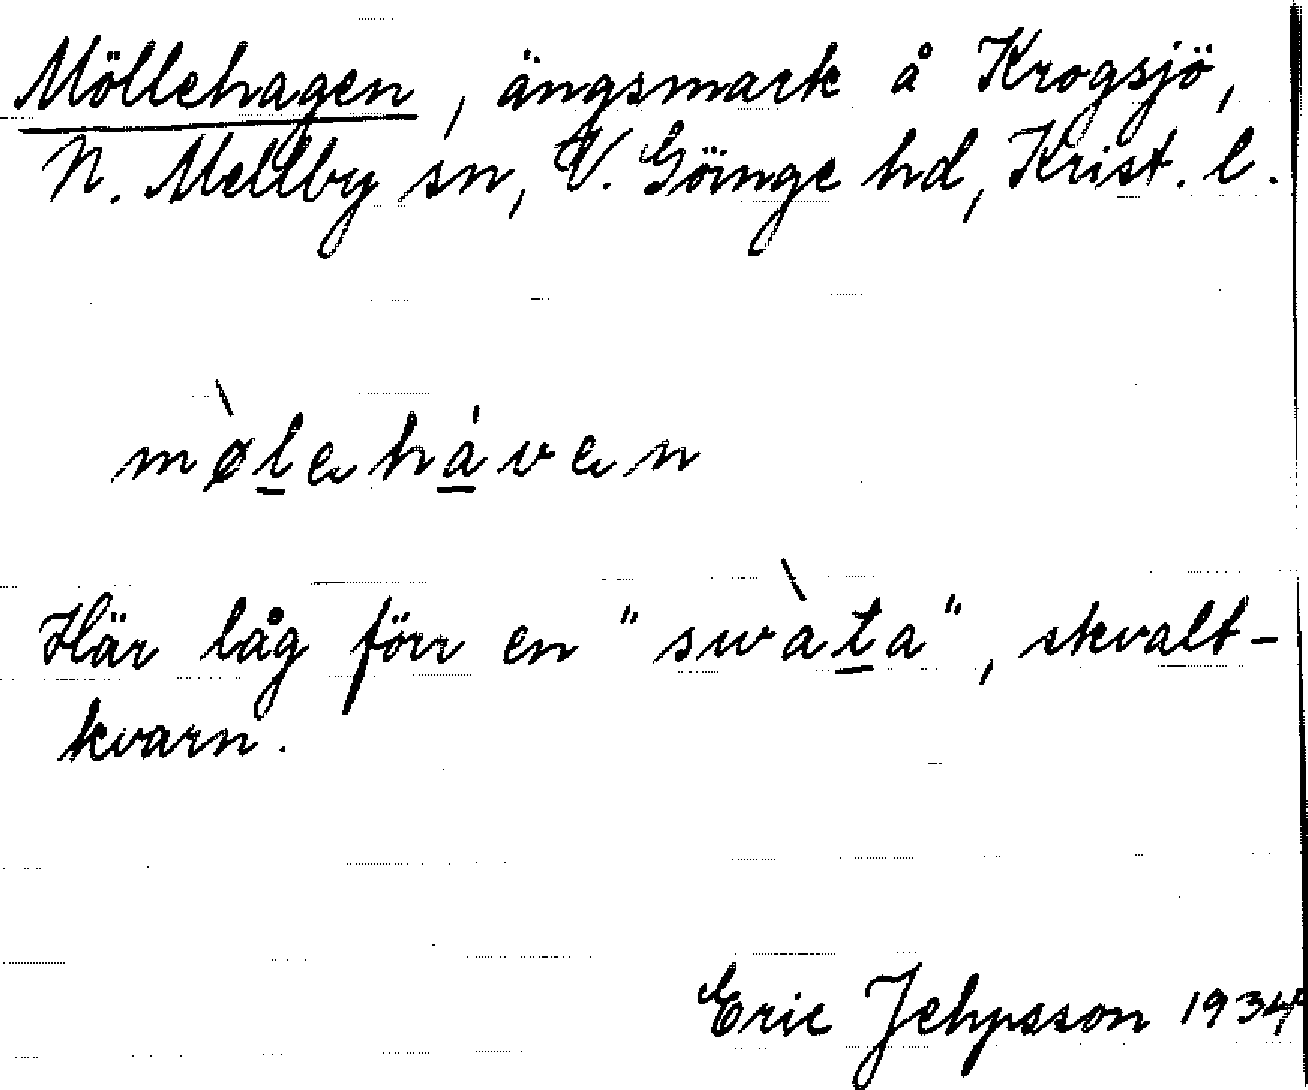 Möllehagen, ängsmark å Krogsjö,
N. Mellby sn, V. Göinge hd, Krist. l.
mø̀leháven
Här låg förr en "swàta", skvalt-
kvarn.
Eric Jehpsson 1934